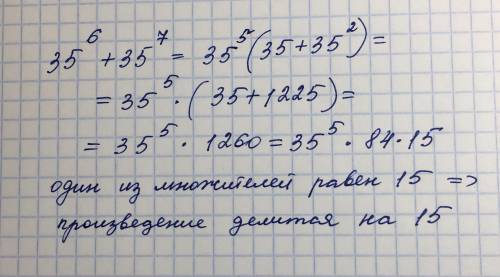 35⁶ + 35⁷ = 35⁵(35 + 35²) =
= 35⁵ · (35 + 1225) =
= 35⁵ · 1260 = 35⁵ · 84 · 15
один из множителей равен 15 =>
произведение делится на 15